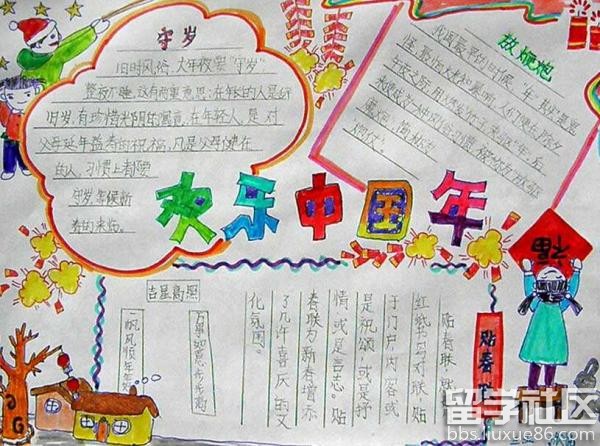 守岁
旧时风俗,大年夜要“守岁”
整夜不睡,这有两重意思:在年长的人是辞
旧岁,有珍惜光阴的寓意,在年轻人,是 对
父母延年益寿的祝福,凡是父母健在
的人,习惯上都要
守岁,等候新
春的来临。
放爆炮
我国最早的时候,“年”
怪,最怕火光和巨响,人们便在除夕
欢乐中国年
福
贴春联
贴春联
红纸书写对联,贴
于门户,内容或
是祝颂,或是抒
情,或是言志。贴
春联为新春增添
了几许喜庆的文
化氛围。
吉星高照
万事如意步步高
一帆风顺年年
留学社区
bbs.liuxue86.com